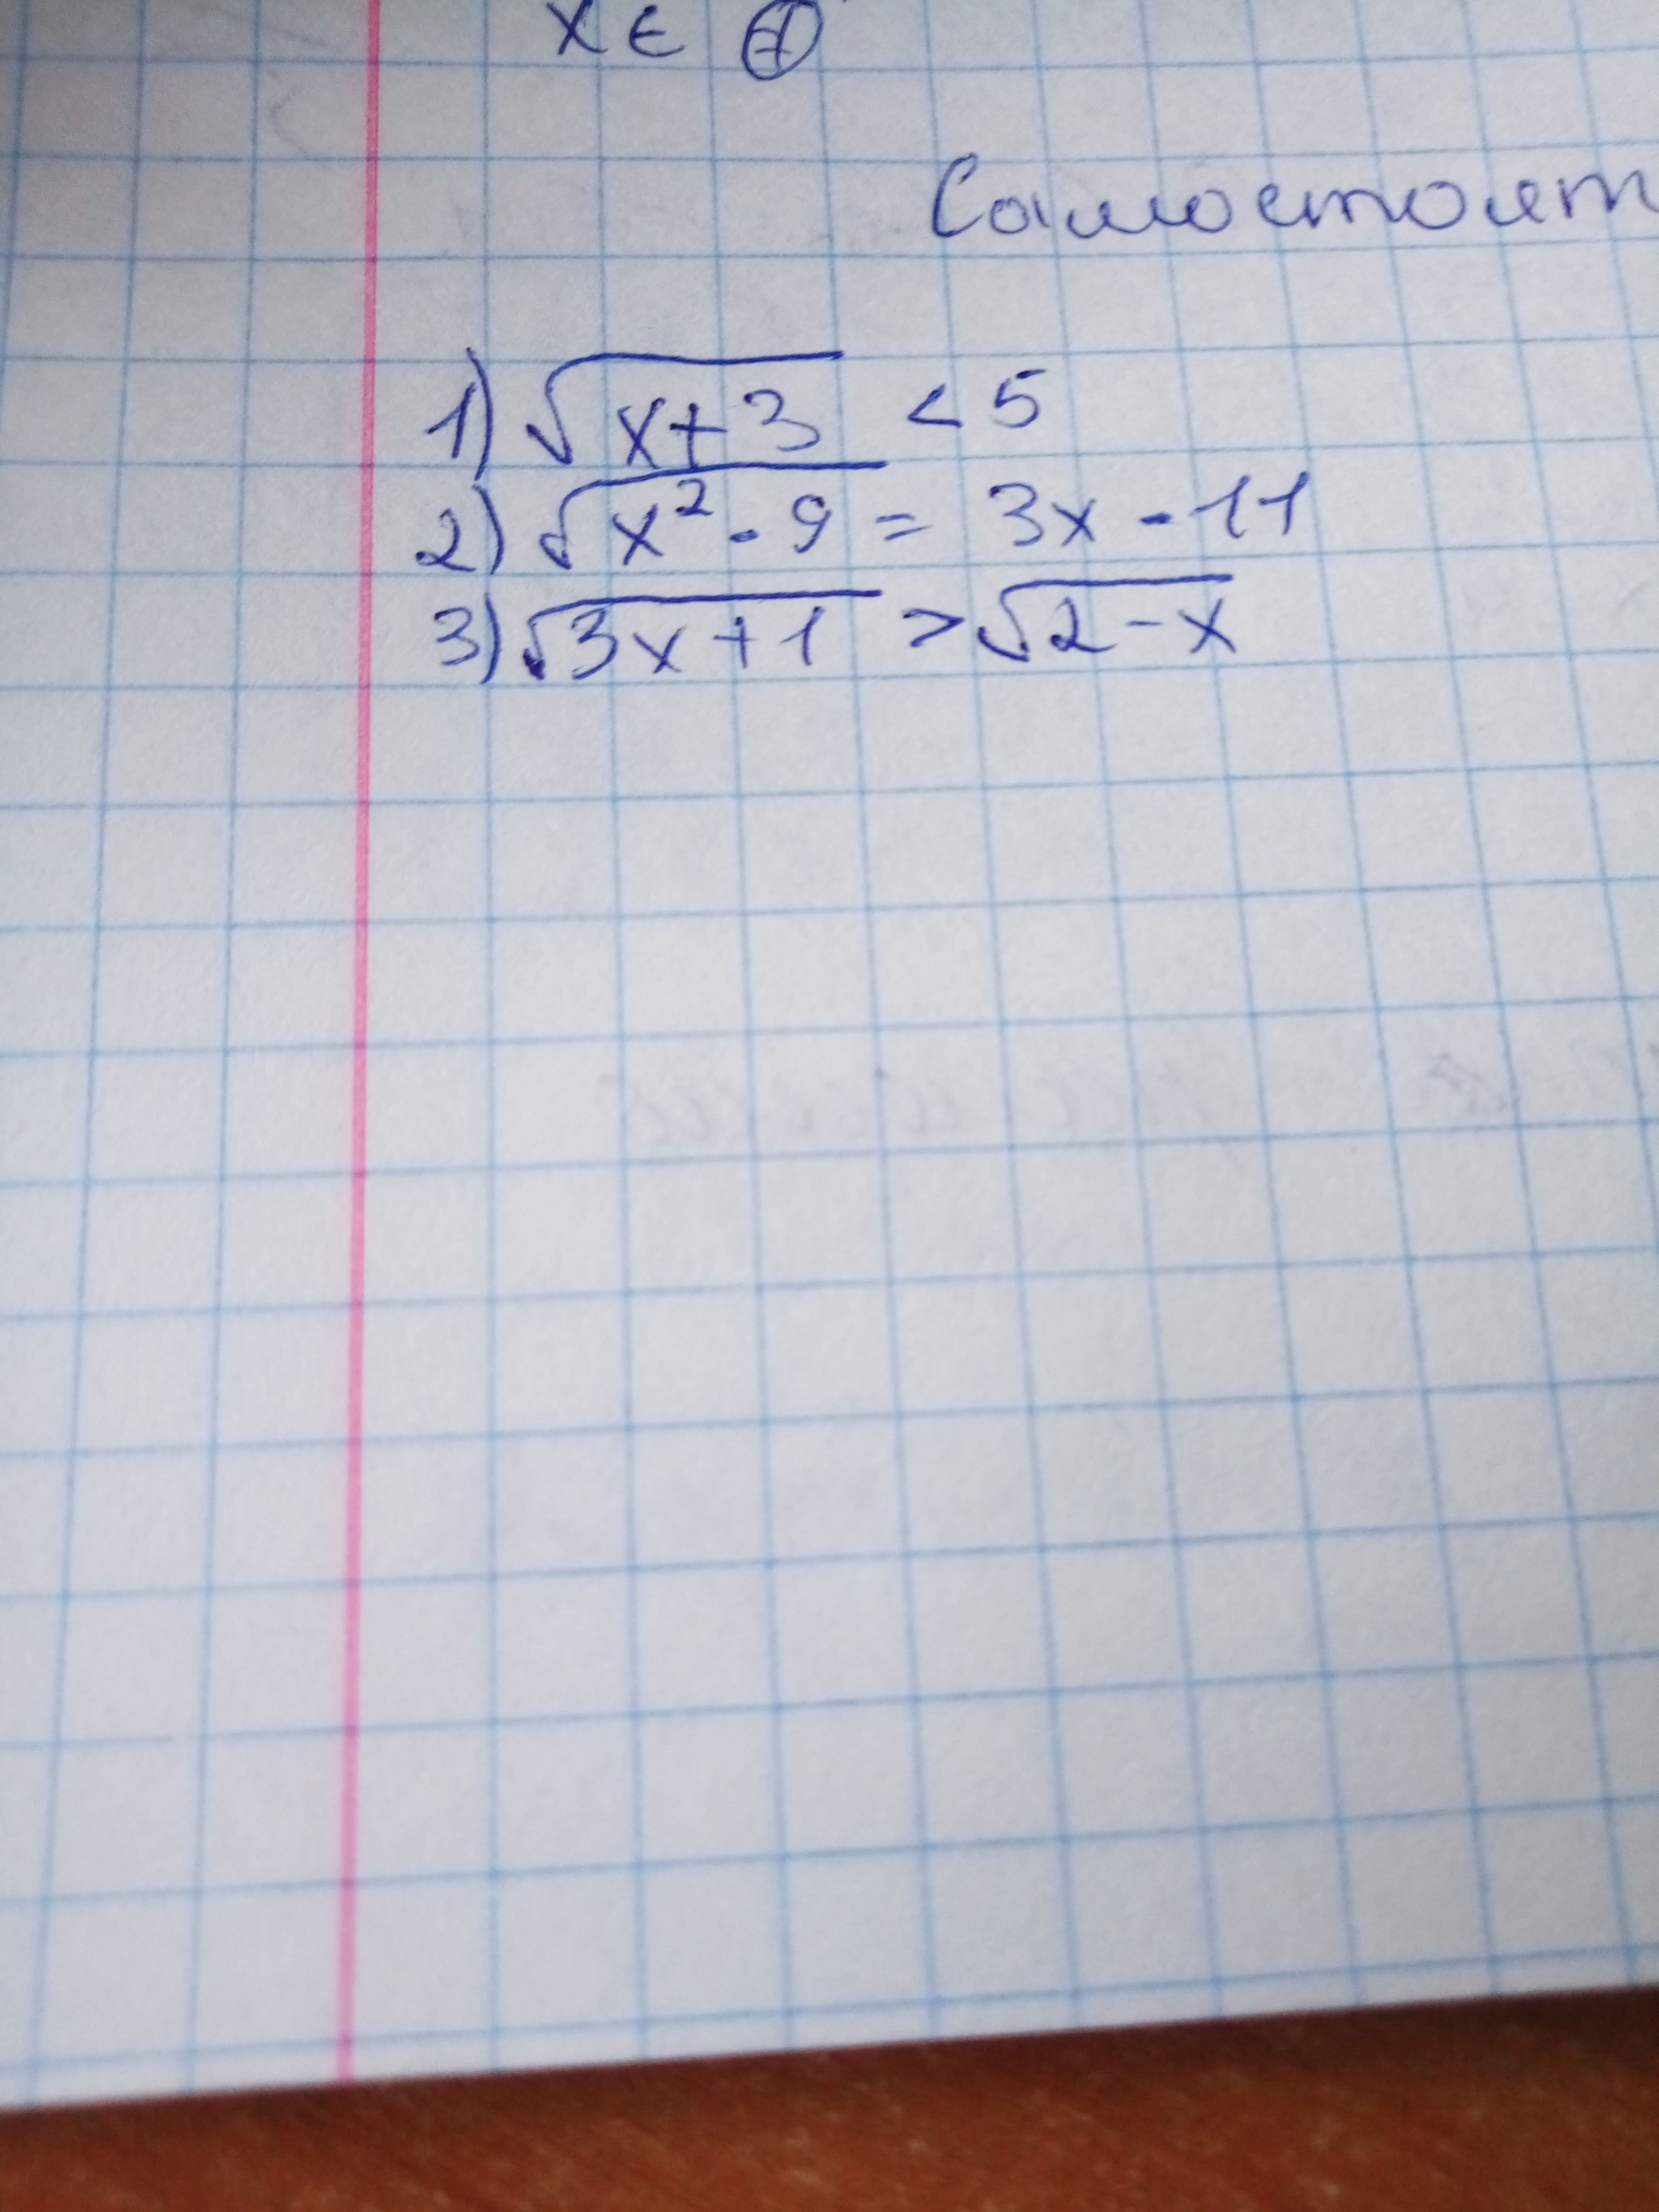 x ∈
Самостоят
1) √x+3 < 5
2) √x² - 9 = 3x - 11
3) √3x+1 > √2-x